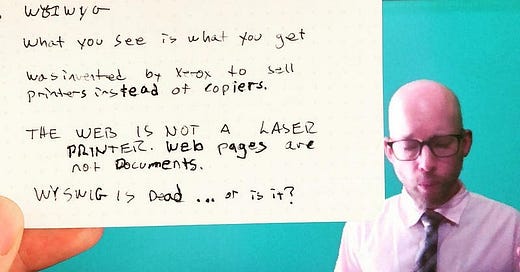 WYSIWYG
What you see is what you get
was invented by Xerox to sell
printers instead of copiers.
THE WEB IS NOT A LASER
PRINTER. Web pages are
not Documents.
WYSWIG is Dead ... or is it?